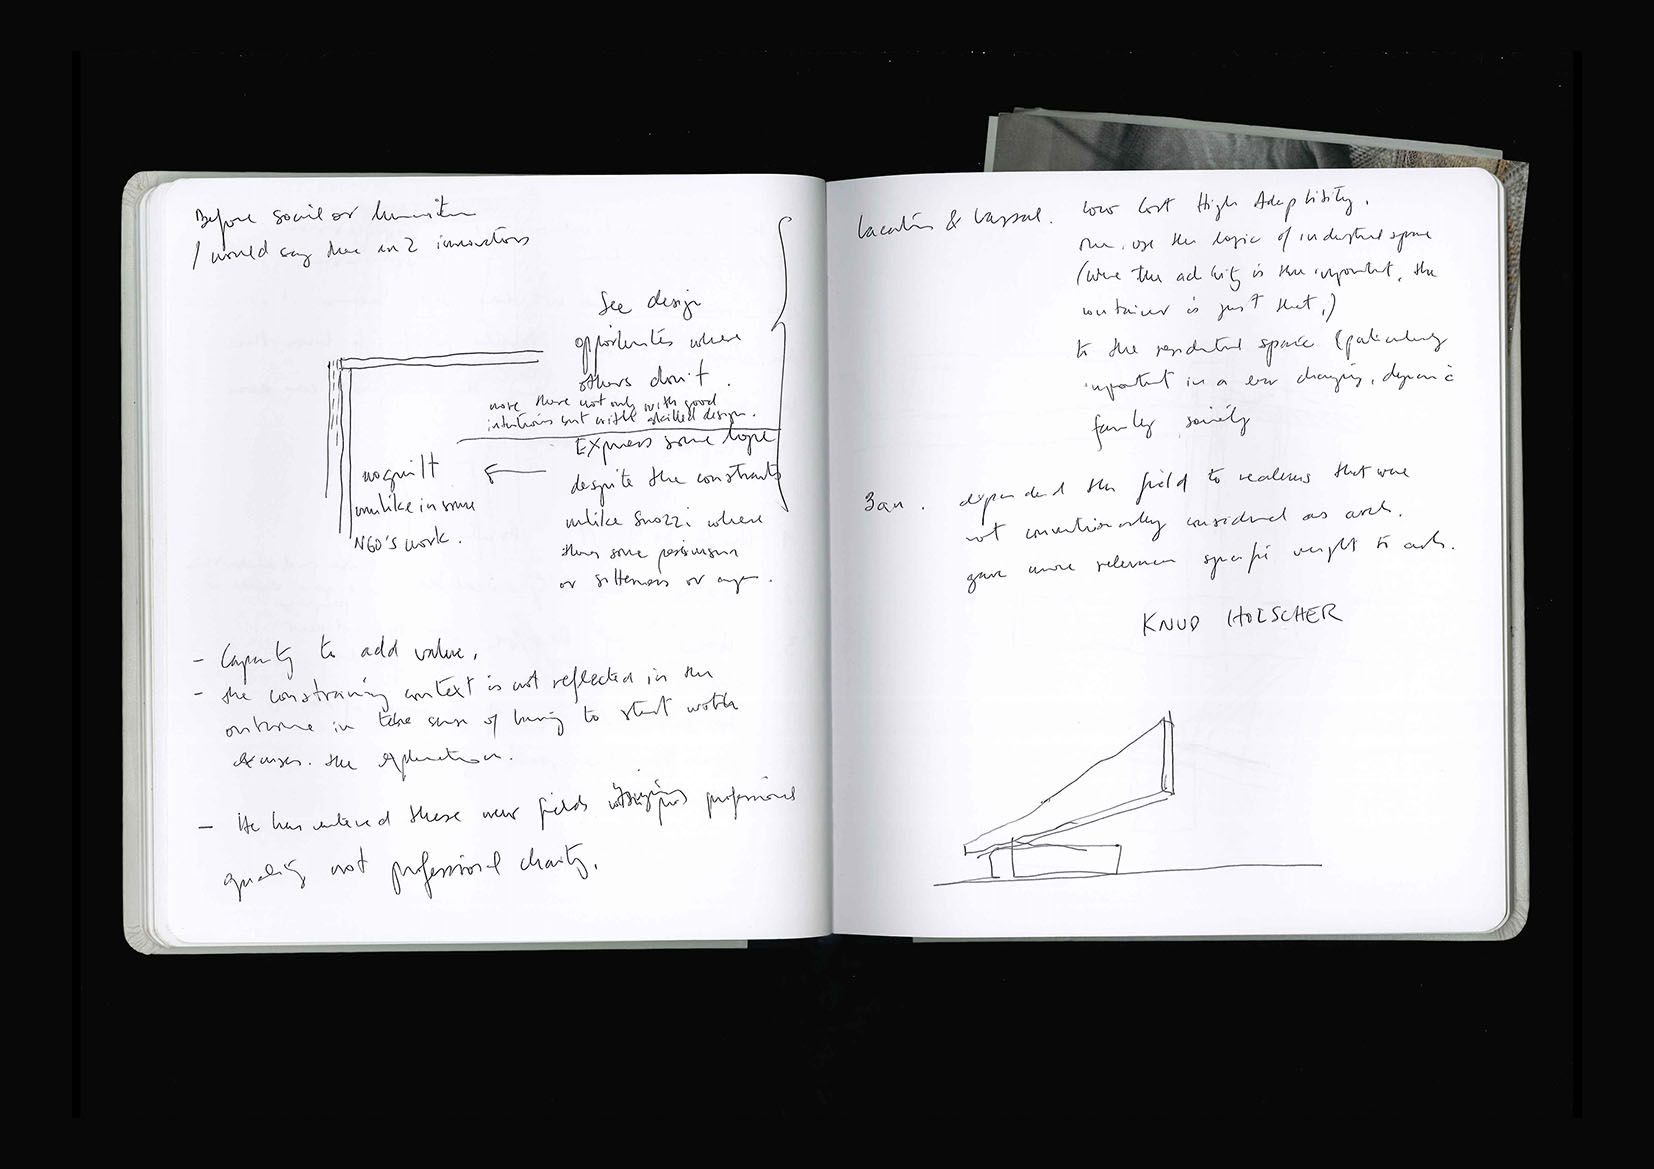 Before social or humanitn
I would say there are 2 innovations
See design
opportunities where
others don't.
move there not only with good
intentions but with skilled design.
Express some hope
despite the constraints
unlike Snozzi where
there's some pessimism
or or
no guilt
unlike in some
NGO's work.
- Capacity to add value,
- the constraining context is not reflected in the
outcome in the sense of having to start with
the explanation.
- He has entered these new fields professional
quality not professional charity.
Lacaton & Vassal. Low Cost High Adaptibility.
use the logic of industrial space
(where the activity is the important, the
container is just that,)
to the residential space (particularly
important in a ever changing, dynamic
family society
Ban. expanded the field to realms that were
not conventionally considered as arch.
gave more relevance specific weight to arch.
KNUD HOLSCHER